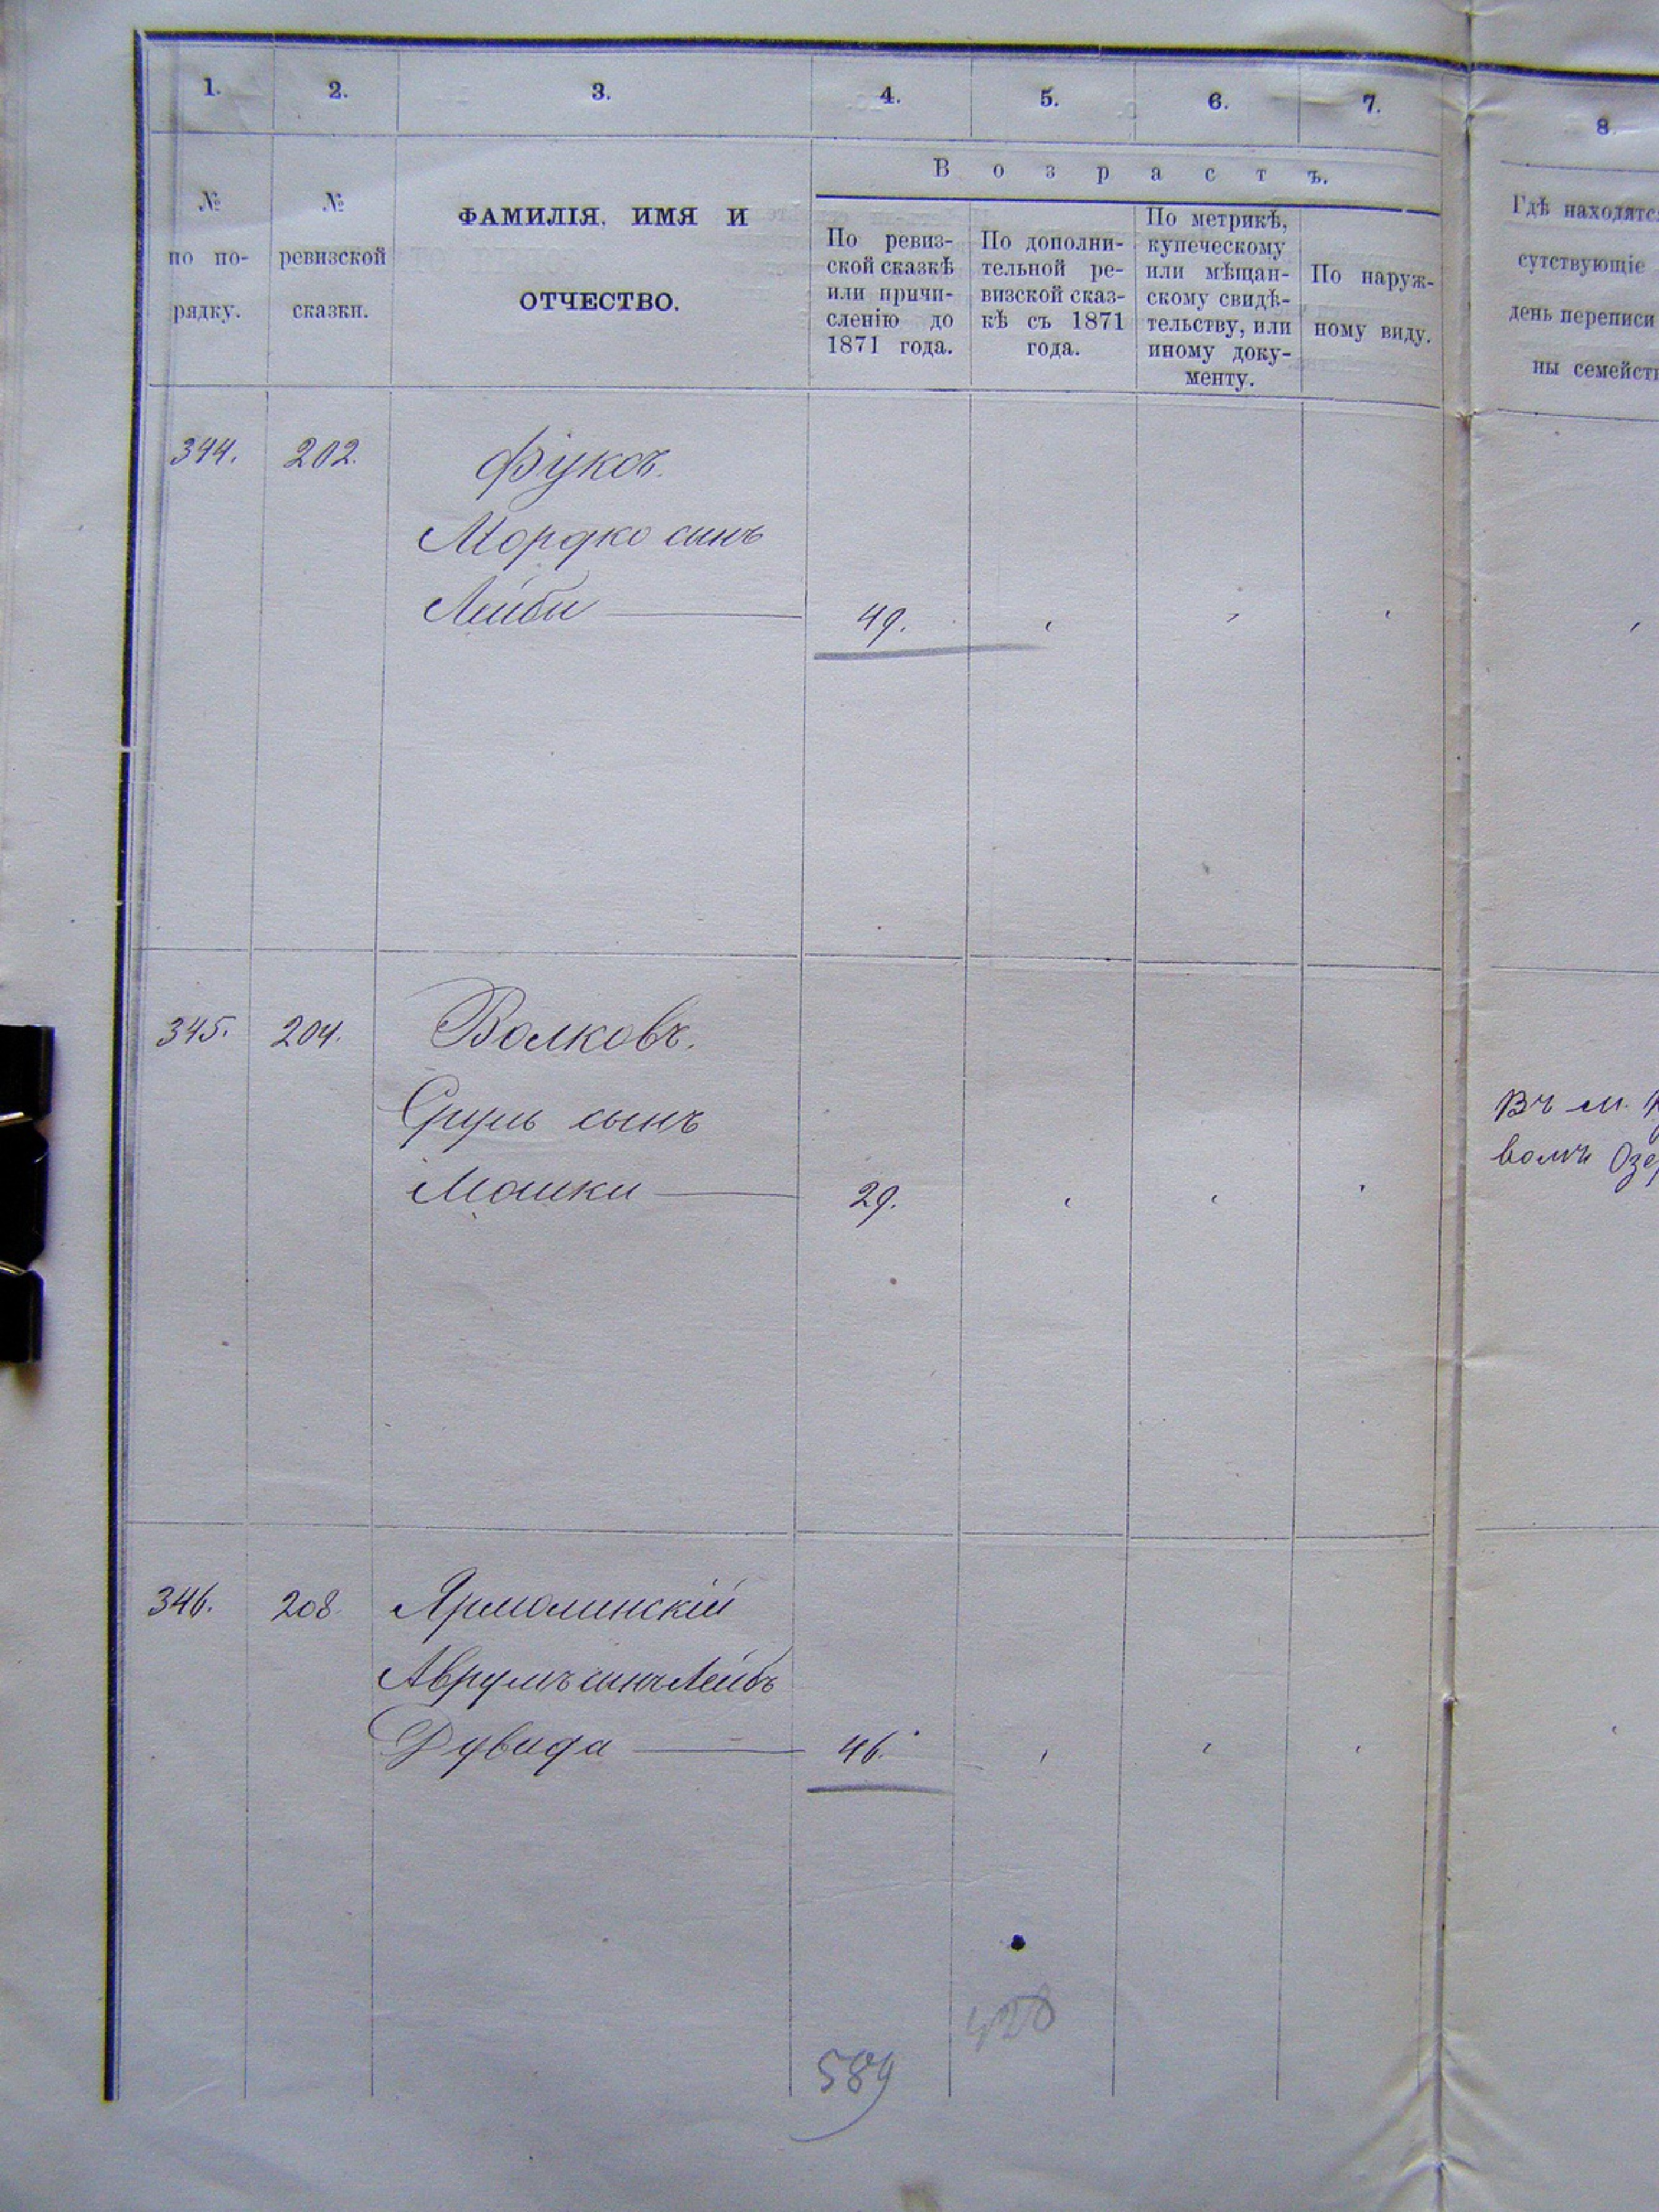 1. 2. 3. 4. 5. 6. 7. 8.
В о з р а с т ъ.
№ по по-рядку.
№ ревизской сказки.
ФАМИЛІЯ, ИМЯ И
ОТЧЕСТВО.
По ревиз-
ской сказкѣ
или причи-
сленію до
1871 года.
По дополни-
тельной ре-
визской сказ-
кѣ съ 1871
года.
По метрикѣ,
купеческому
или мѣщан-
скому свидѣ-
тельству, или
иному доку-
менту.
По наруж-
ному виду.
Гдѣ находятс
сутствующіе
день переписи
ны семейст
344. 202. Фуксъ.
Мордко сынъ
Лейбы 49.
345. 204. Волковъ.
Сруль сынъ
Мошки 29.
Въ м.
вомъ Озе
346. 208. Ярмолинскій
Аврумъ сынъ Лейбъ
Дувида 46.
428
589